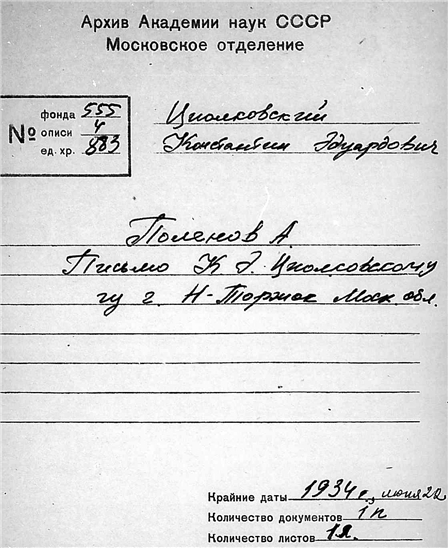 Архив Академии наук СССР
Московское отделение
№
фонда 555
описи 4
ед. хр. 883
Циолковский
Константин Эдуардович
Поленов А.
Письмо К Э. Циолковскому
г. Н-Торжок Моск. обл.
Крайние даты 1934 г, июня 22
Количество документов 1 п
Количество листов 1 л.